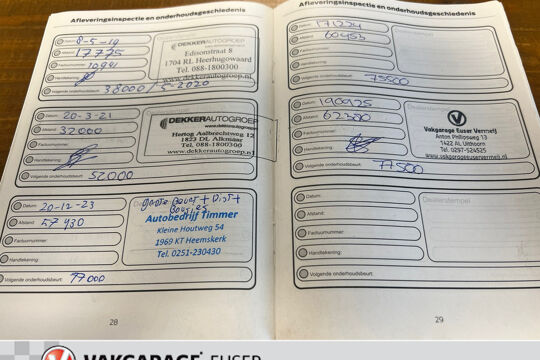 Afleveringsinspectie en onderhoudsgeschiedenis
Datum: 8-5-19
Afstand: 17775
Factuurnummer: 10991
Handtekening:
Volgende onderhoudsbeurt: 38000 / 5-2020
DEKKERAUTOGROEP
Edisonstraat 8
1704 RL Heerhugowaard
Tel. 088-1800300
www.dekkerautogroep.nl
Datum: 20-3-21
Afstand: 32000
Factuurnummer:
Handtekening:
Volgende onderhoudsbeurt: 52000
DEKKERAUTOGROEP
www.dekkerautogroep.nl
Hertog Aalbrechtweg 12
1823 DL Alkmaar
Tel. 088-1800300
www.dekkerautogroep.nl
Datum: 20-12-23
Afstand: 57430
Factuurnummer:
Handtekening:
Volgende onderhoudsbeurt: 77000
Grote Beurt + Dist +
Bougies
Autobedrijf Timmer
Kleine Houtweg 54
1969 KT Heemskerk
Tel. 0251-230430
28
Afleveringsinspectie en onderhoudsgeschiedenis
Datum: 171224
Afstand: 60453
Factuurnummer:
Handtekening:
Volgende onderhoudsbeurt: 75500
Datum: 190925
Afstand: 62380
Factuurnummer:
Handtekening:
Volgende onderhoudsbeurt: 77500
Vakgarage Euser Vermeij
Anton Philipsweg 13
1422 AL Uithoorn
Tel. 0297-524525
www.vakgarageeuservermeij.nl
Datum:
Dealerstempel
Afstand:
Factuurnummer:
Handtekening:
Volgende onderhoudsbeurt:
29
VAKGARAGE EUSER